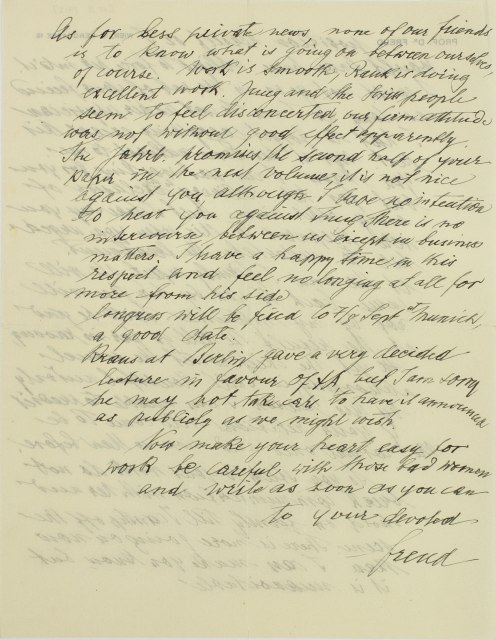 As for less private news, none of our friends
is to know what is going on between ourselves
of course. Work is smooth, Rank is doing
excellent work. Jung and the Zürich people
seem to feel disconcerted, our firm attitude
was not without good effect apparently.
The Jahrb. promises the second half of your
paper in the next volume, it is not nice
against you, although I have no intention
to heat you against Jung. There is no
intercourse between us except in business
matters. I have a happy time in this
respect and feel no longing at all for
more from his side
Congress will be fixed to 7/8 Sept at Munich,
a good date.
Kraus at Berlin gave a very decided
lecture in favour of ΨA, but I am sorry
he may not take care to have it announced
as publicly as we might wish.
Now make your heart easy for
work be careful with those bad women
and write as soon as you can
to your devoted
Freud